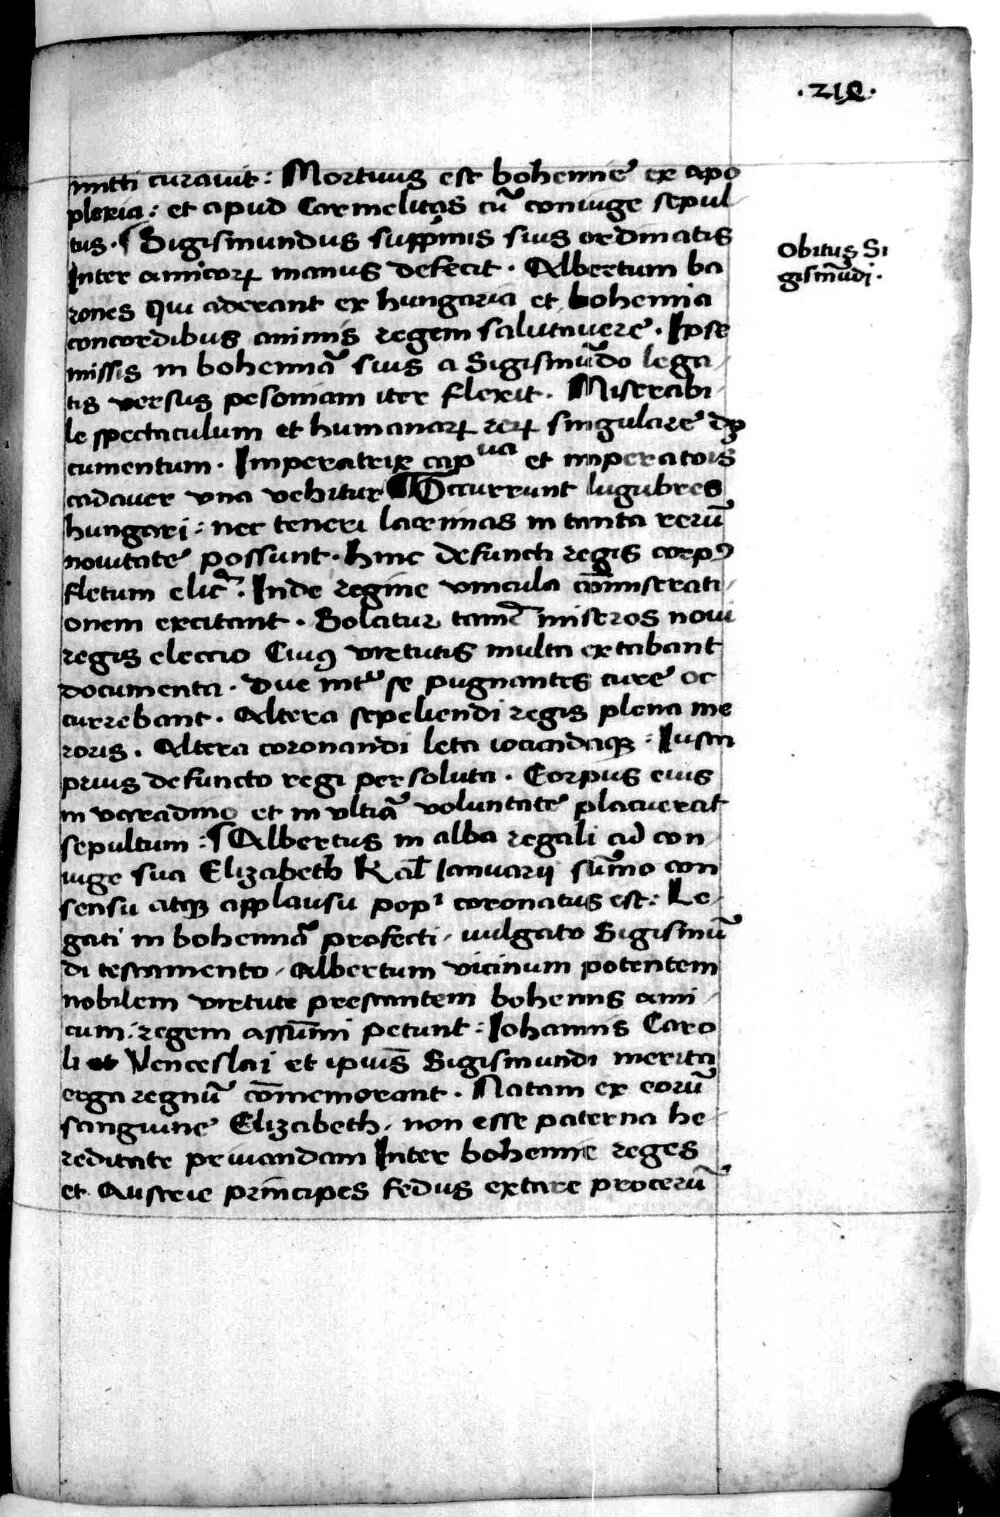 ·218·
mitti curauit: Mortuus est bohemie ex apo
plexia: et apud Carmelitas cū coniuge sepul-
tus. ¶ Sigismundus suppmis suis ordinatis
Inter amicorꝝ manus defecit. Albertum ba
rones Qui aderant ex hungaria et bohemia
concordibus animis regem salutauere. Ipse
missis in bohemiā suis a Sigismūdo lega-
tis versus posoniam iter flexit. Miserabi-
le spectaculum et humanarꝝ rerꝝ singulare do
cumentum. Imperatrix capᵘᵃ et imperatoris
cadauer vna vehitur ¶ Occurrunt lugubres
hungari: nec teneri lacrimas in tanta rerū
nouitate possunt. hinc defuncti regis corpꝰ
fletum elic̄. Inde regine vincula cōmiserati-
onem excitant. Solatur tam̄ miseros noui
regis eleccio Cuiꝰ virtutis multa extabant
documenta. Due int̄ se pugnantes cure oc
currebant. Altera sepeliendi regis plena me
roris. Altera coronandi leta iocundaqꝫ: Iusta
prius defuncto regi persoluta. Corpus eius
in varadino et in vltiā voluntate placuerat
sepultum: ¶ Albertus in alba regali cū con-
iuge sua Elizabeth Kal̄ Ianuarij sūmo con
sensu atqꝫ applausu popⁱ coronatus est: Le-
gati in bohemiā profecti, uulgato Sigismū
di testamento, Albertum vicinum potentem
nobilem virtute prestantem bohemis ami-
cum: regem assūmi petunt: Iohannis Caro
li et Venceslai et ipius̄ Sigismundi merita
erga regnū cōmemorant. Natam ex eorū
sanguine Elizabeth, non esse paterna he-
reditate priuandam Inter bohemie reges
et Austrie principes fedus extare procerū
Obitus Si
gismūdi.